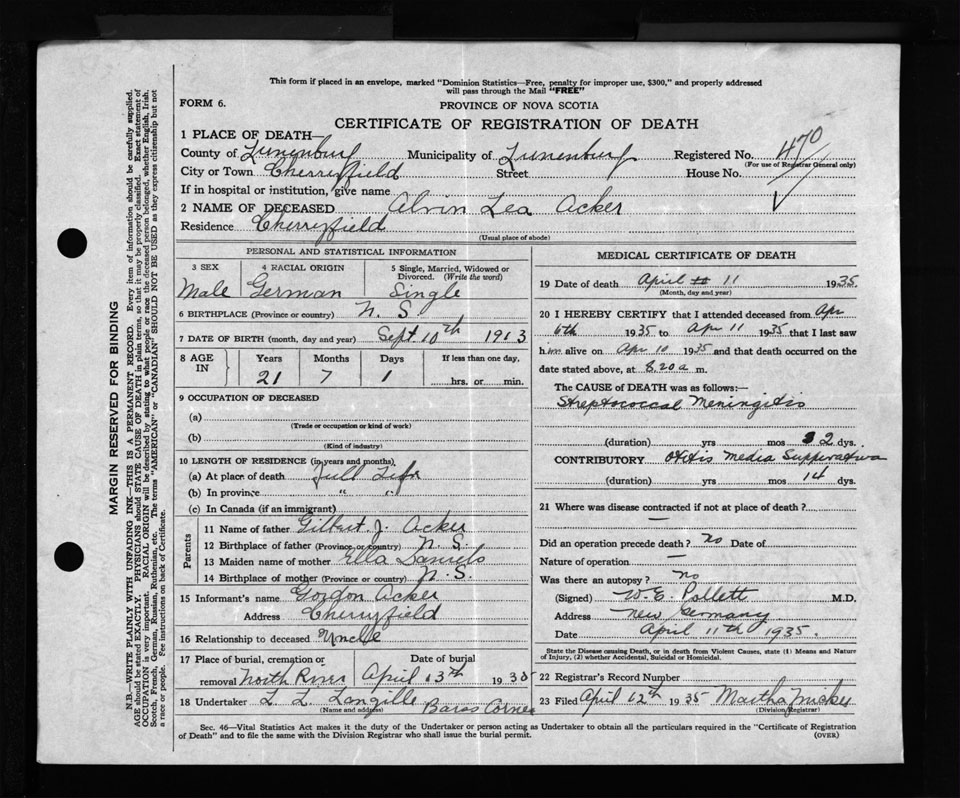 This form if placed in an envelope, marked "Dominion Statistics—Free, penalty for improper use, $300," and properly addressed
will pass through the Mail "FREE"
FORM 6.
PROVINCE OF NOVA SCOTIA
CERTIFICATE OF REGISTRATION OF DEATH
1 PLACE OF DEATH—
County of Lunenburg Municipality of Lunenburg Registered No. 470
(For use of Registrar General only)
City or Town Cherryfield Street House No.
If in hospital or institution, give name
2 NAME OF DECEASED Alvin Lea Acker
Residence Cherryfield
(Usual place of abode)
PERSONAL AND STATISTICAL INFORMATION
3 SEX 4 RACIAL ORIGIN 5 Single, Married, Widowed or
Divorced. (Write the word)
Male German Single
6 BIRTHPLACE (Province or country) N. S.
7 DATE OF BIRTH (month, day and year) Sept 10th 1913
8 AGE IN Years Months Days If less than one day,
21 7 1 hrs. or min.
9 OCCUPATION OF DECEASED
(a)
(Trade or occupation or kind of work)
(b)
(Kind of industry)
10 LENGTH OF RESIDENCE (in years and months)
(a) At place of death Full Life
(b) In province " "
(c) In Canada (if an immigrant)
Parents
11 Name of father Gilbert J. Acker
12 Birthplace of father (Province or country) N. S.
13 Maiden name of mother Ella Daniels
14 Birthplace of mother (Province or country) N. S.
15 Informant's name Gordon Acker
Address Cherryfield
16 Relationship to deceased Uncle
17 Place of burial, cremation or Date of burial
removal North River April 13th 1935
18 Undertaker L. L. Langille Barss Corner
(Name and address)
MEDICAL CERTIFICATE OF DEATH
19 Date of death April 11 1935
(Month, day and year)
20 I HEREBY CERTIFY that I attended deceased from Apr
6th 1935 to Apr 11 1935 that I last saw
him alive on Apr 10 1935 and that death occurred on the
date stated above, at 8.20 a m.
The CAUSE OF DEATH was as follows:—
Streptococcal Meningitis
(duration) yrs mos 2 dys.
CONTRIBUTORY Otitis Media Suppurativa
(duration) yrs mos 14 dys.
21 Where was disease contracted if not at place of death?
—
Did an operation precede death? No Date of
Nature of operation —
Was there an autopsy? no
(Signed) W. E. Pollett M.D.
Address New Germany
Date April 11th 1935.
State the Disease causing Death, or in death from Violent Causes, state (1) Means and Nature
of Injury, (2) whether Accidental, Suicidal or Homicidal.
22 Registrar's Record Number
23 Filed April 12th 1935 Martha
(Division Registrar)
Sec. 46—Vital Statistics Act makes it the duty of the Undertaker or person acting as Undertaker to obtain all the particulars required in the "Certificate of Registration
of Death" and to file the same with the Division Registrar who shall issue the burial permit. (OVER)
MARGIN RESERVED FOR BINDING
N.B.—WRITE PLAINLY WITH UNFADING INK—THIS IS A PERMANENT RECORD. Every item of information should be carefully supplied.
AGE should be stated EXACTLY. PHYSICIANS should STATE CAUSE OF DEATH in plain terms, so that it may be properly classified. Exact statement of
OCCUPATION is very important. RACIAL ORIGIN will be described by stating to what people or race the deceased person belonged, whether English, Irish,
Scotch, French, German, Russian, Ruthenian, etc. The terms "AMERICAN" or "CANADIAN" SHOULD NOT BE USED as they express citizenship but not
a race or people. See instructions on back of Certificate.